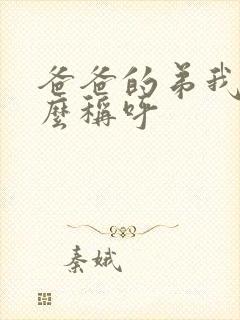 爸爸的弟我
麼稱呼
秦娥